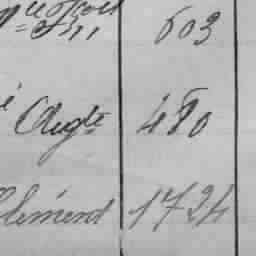 603
Augte 480
Clément 1724